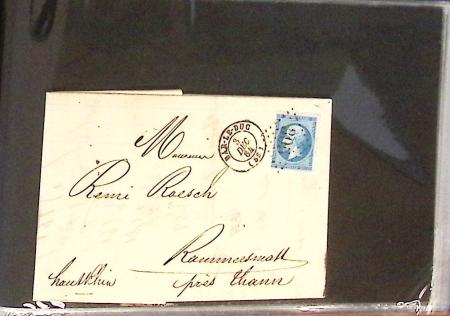 Monsieur
BAR-LE-DUC
3
DEC
64
(53)
Remi Roesch
Rammersmatt
près Thann
haut Rhin